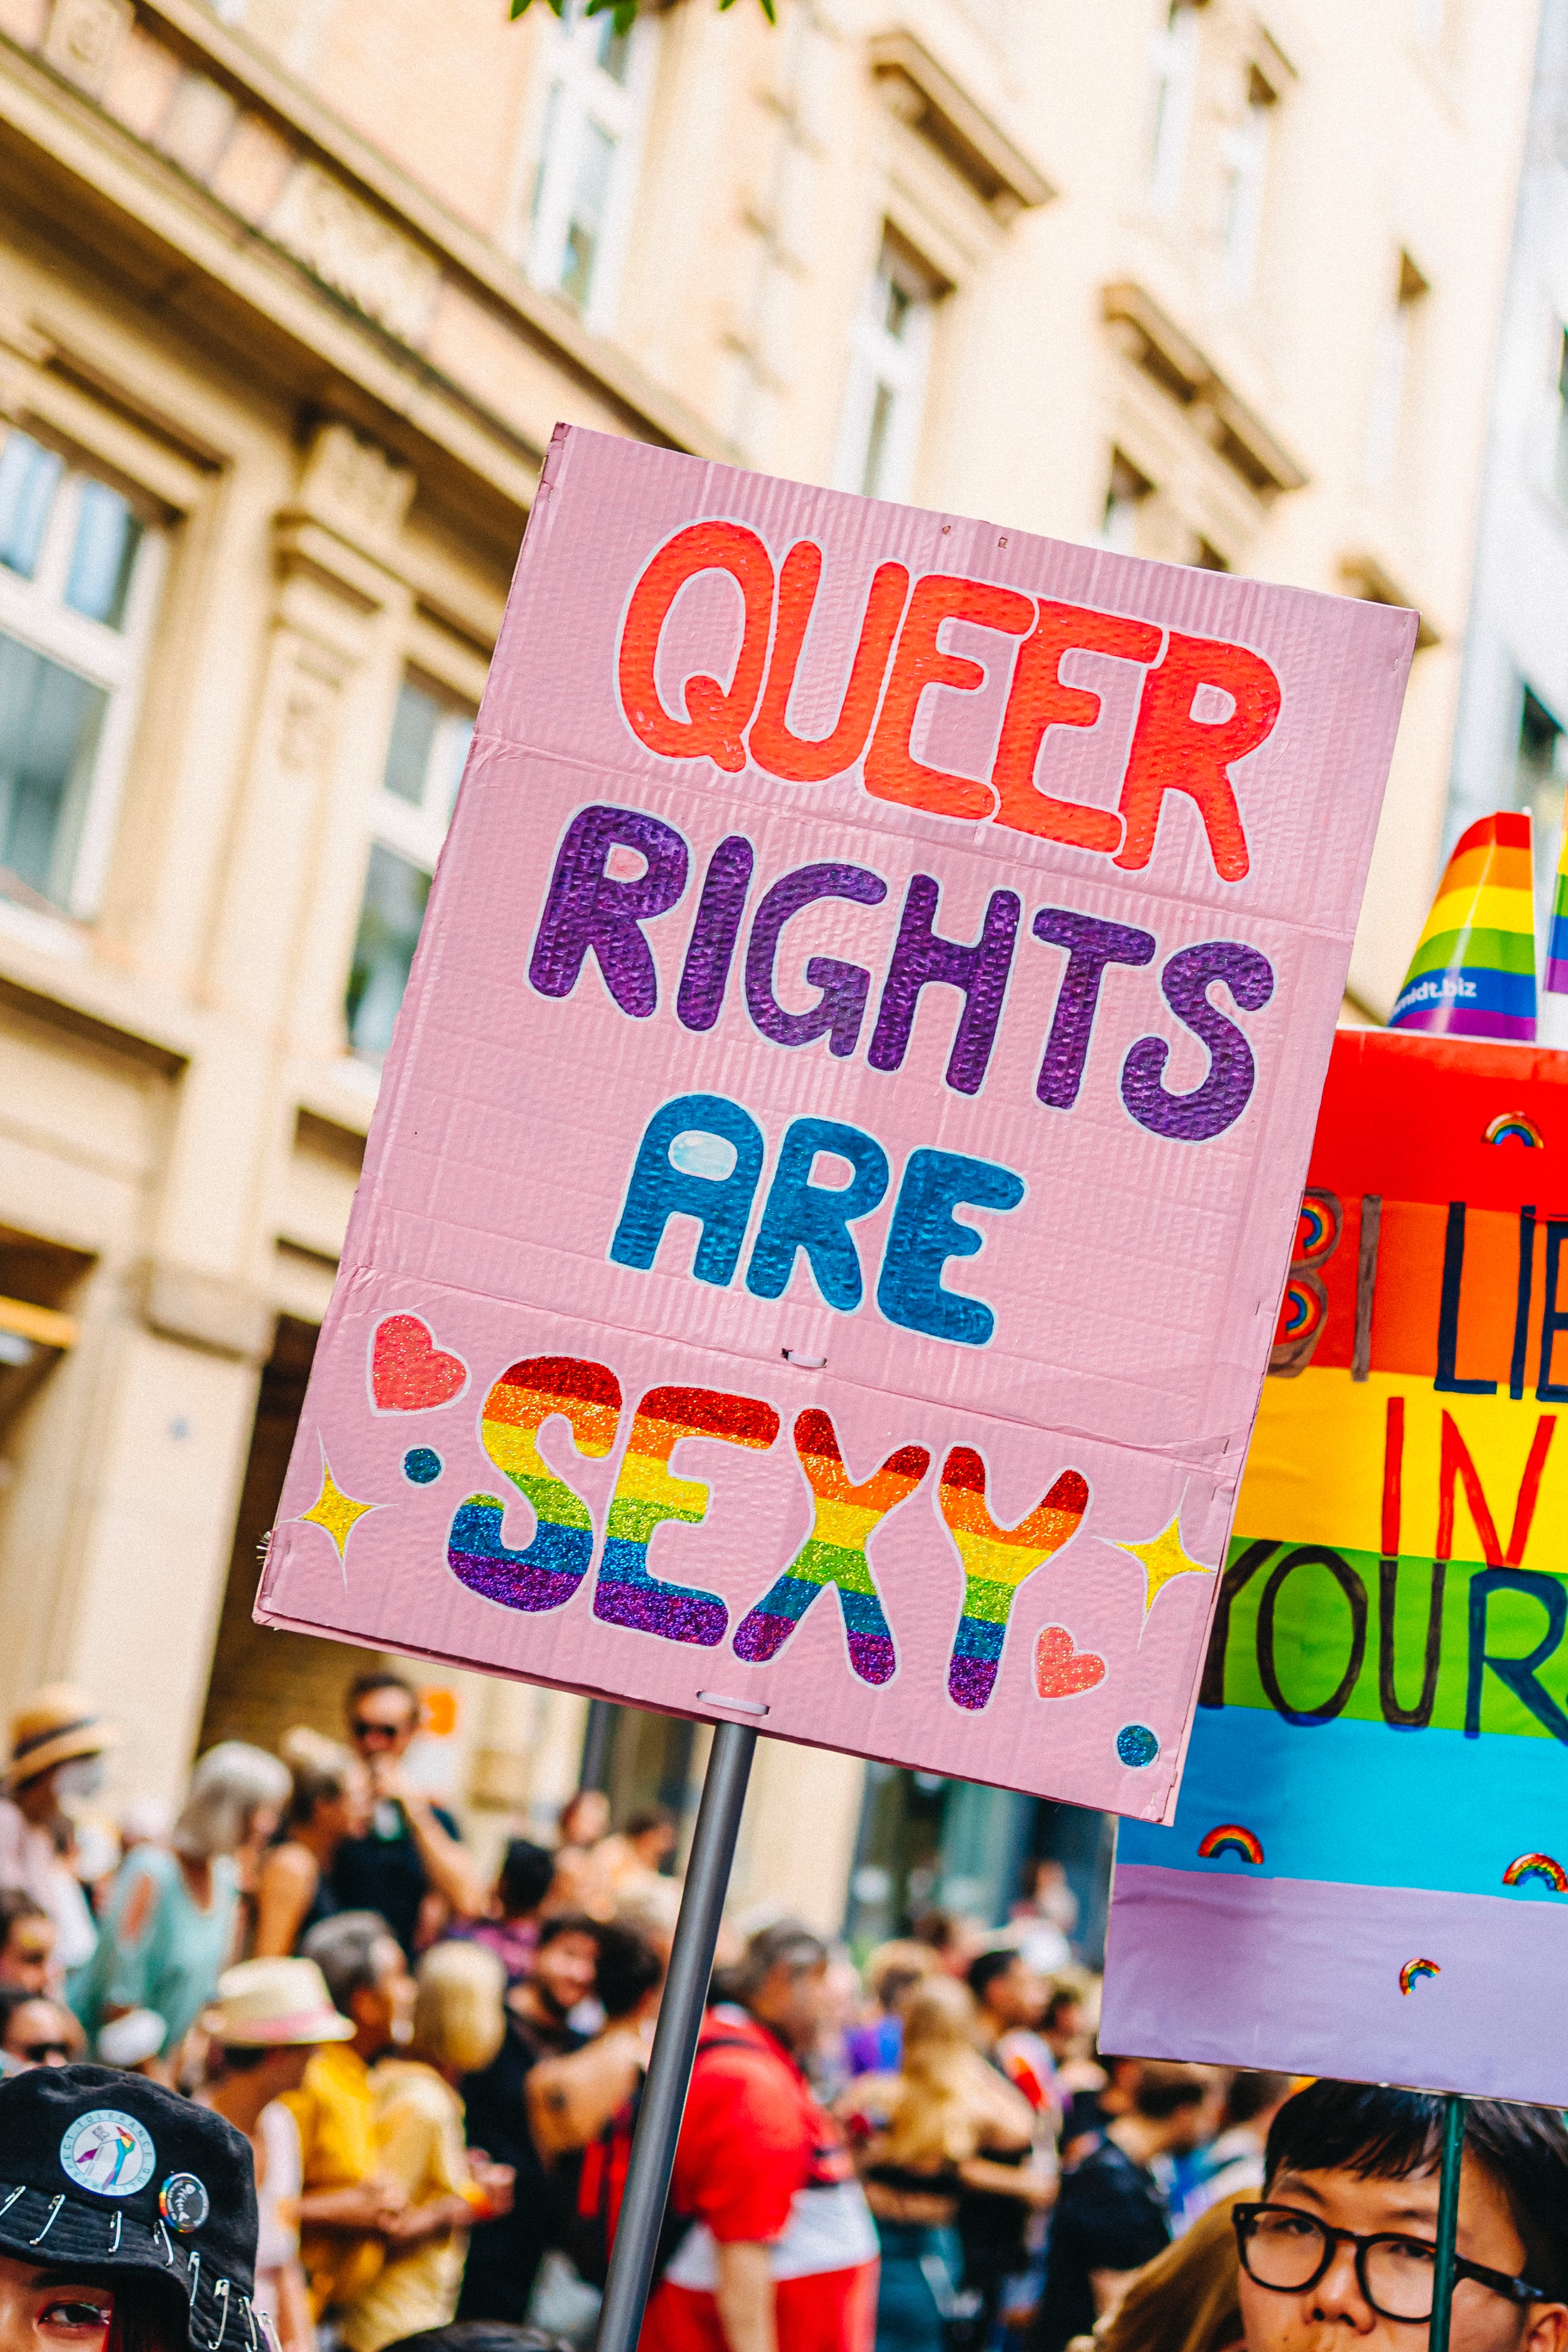 QUEER
RIGHTS
ARE
SEXY
midt.biz
BI LIE
IN
YOUR
TOLERANCE